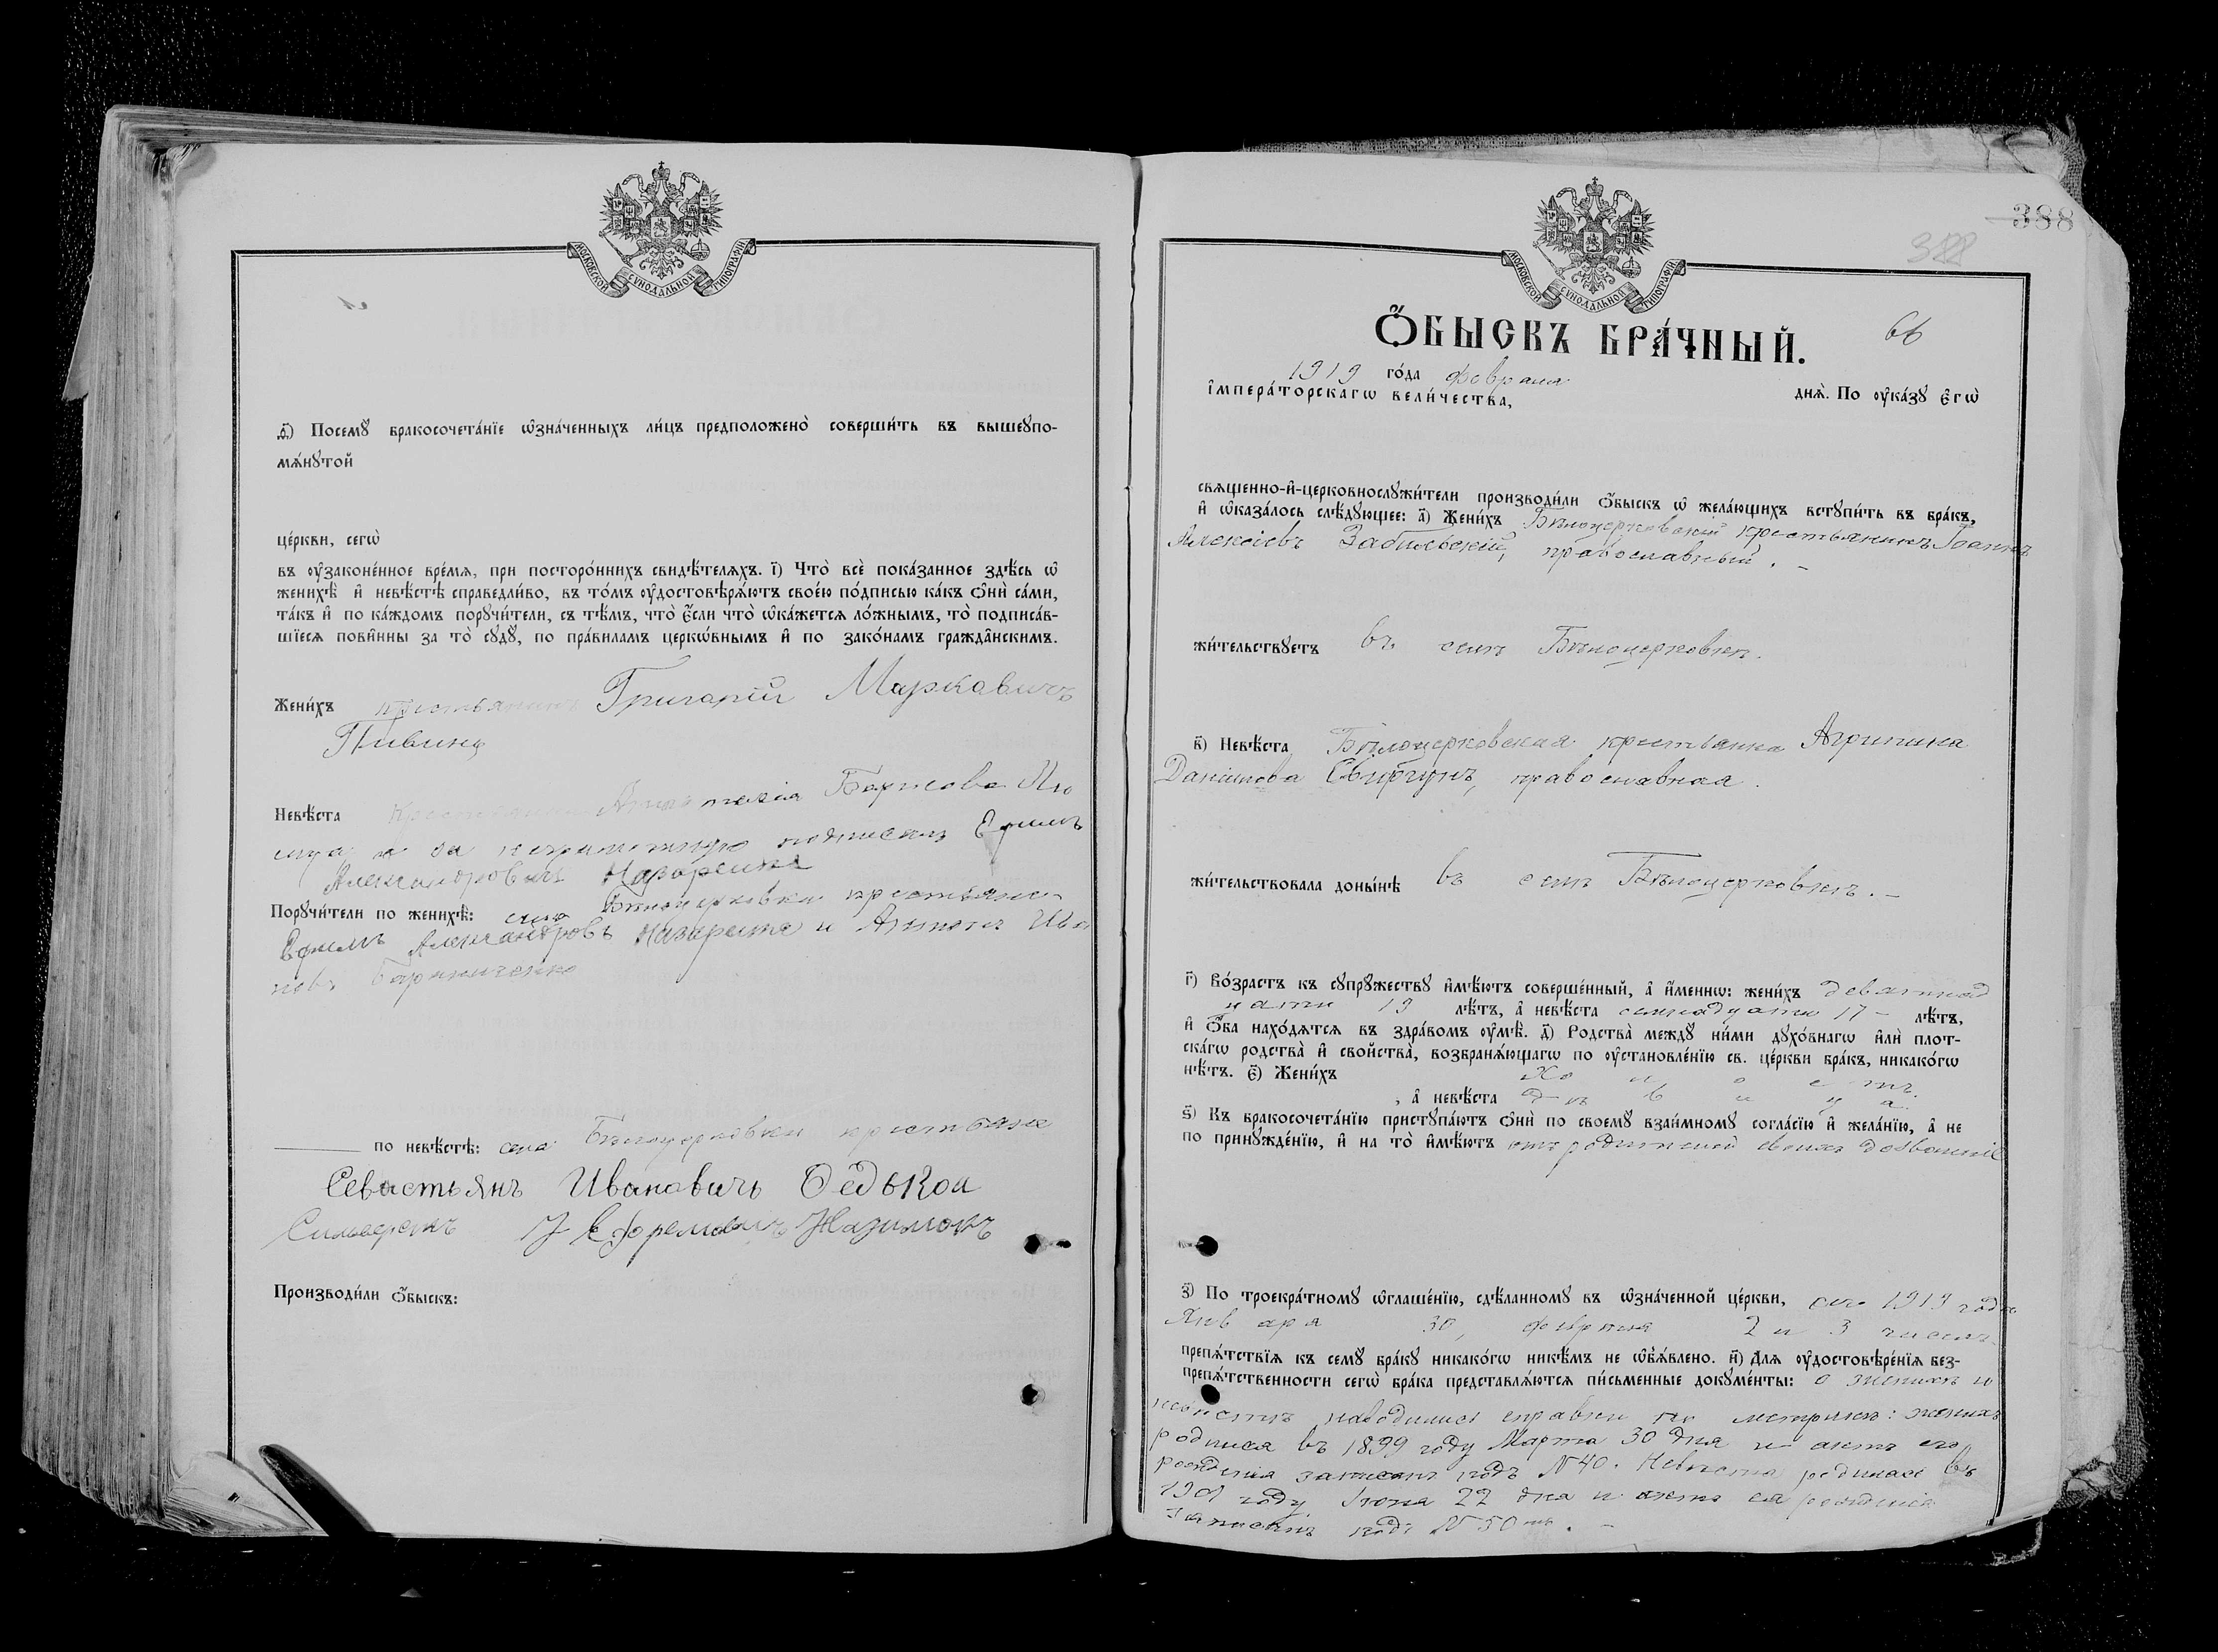 МОСКОВСКОЙ СѴНОДАЛЬНОЙ ТИПОГРАФІИ
ѳ҃) Посемꙋ̀ бракосочета́нїе ѡ҆зна́ченныхъ ли́цъ предположено̀ соверши́ть въ вышеꙋпо-
мѧ́нꙋтой
це́ркви, сегѡ̀
въ ᲂу҆законе́нное вре́мѧ, при посторо́ннихъ свидѣ́телѧхъ. і҃) Что̀ всѐ пока́занное здѣ́сь ѡ҆
женихѣ̀ и҆ невѣ́стѣ справедли́во, въ то́мъ ᲂу҆достовѣрѧ́ютъ свое́ю по́дписью ка́къ ѻ҆нѝ са́ми,
та́къ и҆ по ка́ждомъ порꙋчи́тели, съ тѣ́мъ, что̀ є҆́сли что̀ ѡ҆ка́жетсѧ ло́жнымъ, то̀ подписа́в-
шїесѧ пови́нны за то̀ сꙋдꙋ̀, по пра́виламъ церкѡ́внымъ и҆ по зако́намъ гражда́нскимъ.
Жени́хъ крестьянинъ Григарій Маркавичъ
Пивинц
Невѣ́ста Борисова
за неграмотную Ефимъ
Александровъ Назаренко
Порꙋчи́тели по женихѣ̀: села Бѣлоцерковки крестьяне
Ефимъ Александровъ Назаренко и Ива
новъ
по невѣ́стѣ: села Бѣлоцерковки крестьяне
Севастьянъ Ивановичь Редькои
Ефремовичъ
Производи́ли ѻ҆́быскъ:
388
388
МОСКОВСКОЙ СѴНОДАЛЬНОЙ ТИПОГРАФІИ
Ѻ҆́БЫСКЪ БРА́ЧНЫЙ. 66
1919 го́да Февраля днѧ̀. По ᲂу҆ка́зꙋ є҆гѡ̀
і҆мпера́торскагѡ вели́чества,
свѧщенно-и҆-церковнослꙋжи́тели производи́ли ѻ҆́быскъ ѡ҆ жела́ющихъ вступи́ть въ бра́къ,
и҆ ѡ҆каза́лось слѣ́дꙋющее: а҃) Жени́хъ Бѣлоцерковскій крестьянинъ Іоаннъ
Алексіевъ Забильскій, православный. –
жи́тельствꙋетъ въ селѣ Бѣлоцерковкѣ.
в҃) Невѣ́ста Бѣлоцерковская крестьянка Агрипина
Даніилова Свиргунъ, православная.
жи́тельствовала доны́нѣ въ селѣ Бѣлоцерковкѣ. –
г҃) Во́зрастъ къ сꙋпрꙋ́жествꙋ и҆мѣ́ютъ соверше́нный, а҆ и҆́меннѡ: жени́хъ девятнад
цати 19 лѣ́тъ, а҆ невѣ́ста семнадцати 17 – лѣ́тъ,
и҆ ѻ҆́ба нахо́дѧтсѧ въ здра́вомъ ᲂу҆мѣ̀. д҃) Родства̀ междꙋ̀ ни́ми дꙋхо́внагѡ и҆лѝ плот-
ска́гѡ родства̀ и҆ сво́йства, возбранѧ́ющагѡ по ᲂу҆становле́нїю св. це́ркви бра́къ, никако́гѡ
нѣ́тъ. є҃) Жени́хъ Холостъ
, а҆ невѣ́ста Дѣвица
ѕ҃) Къ бракосочета́нїю пристꙋпа́ютъ ѻ҆нѝ по своемꙋ̀ взаи́мномꙋ согла́сїю и҆ жела́нїю, а҆ не
по принꙋжде́нїю, и҆ на то̀ и҆мѣ́ютъ отъ родителей своихъ дозволеніе
з҃) По троекра́тномꙋ ѡ҆глаше́нїю, сдѣ́ланномꙋ въ ѡ҆зна́ченной це́ркви, сего 1919 года
Января 30, февраля 2 и 3 чиселъ
препѧ́тствїѧ къ семꙋ̀ бра́кꙋ никако́гѡ никѣ́мъ не ѡ҆б̾ѧ́влено. и҃) Длѧ ᲂу҆достовѣре́нїѧ без-
препѧ́тственности сегѡ̀ бра́ка представлѧ́ютсѧ пи́сьменные докꙋме́нты: о женихѣ и
невѣстѣ наводились справки по метрикѣ: женихъ
родился въ 1899 году Марта 30 дня и актъ его
рожденія записанъ подъ № 40. Невѣста родилась въ
1901 году Іюня 22 дня и актъ ея рожденія
записанъ подъ № 50 мъ. –